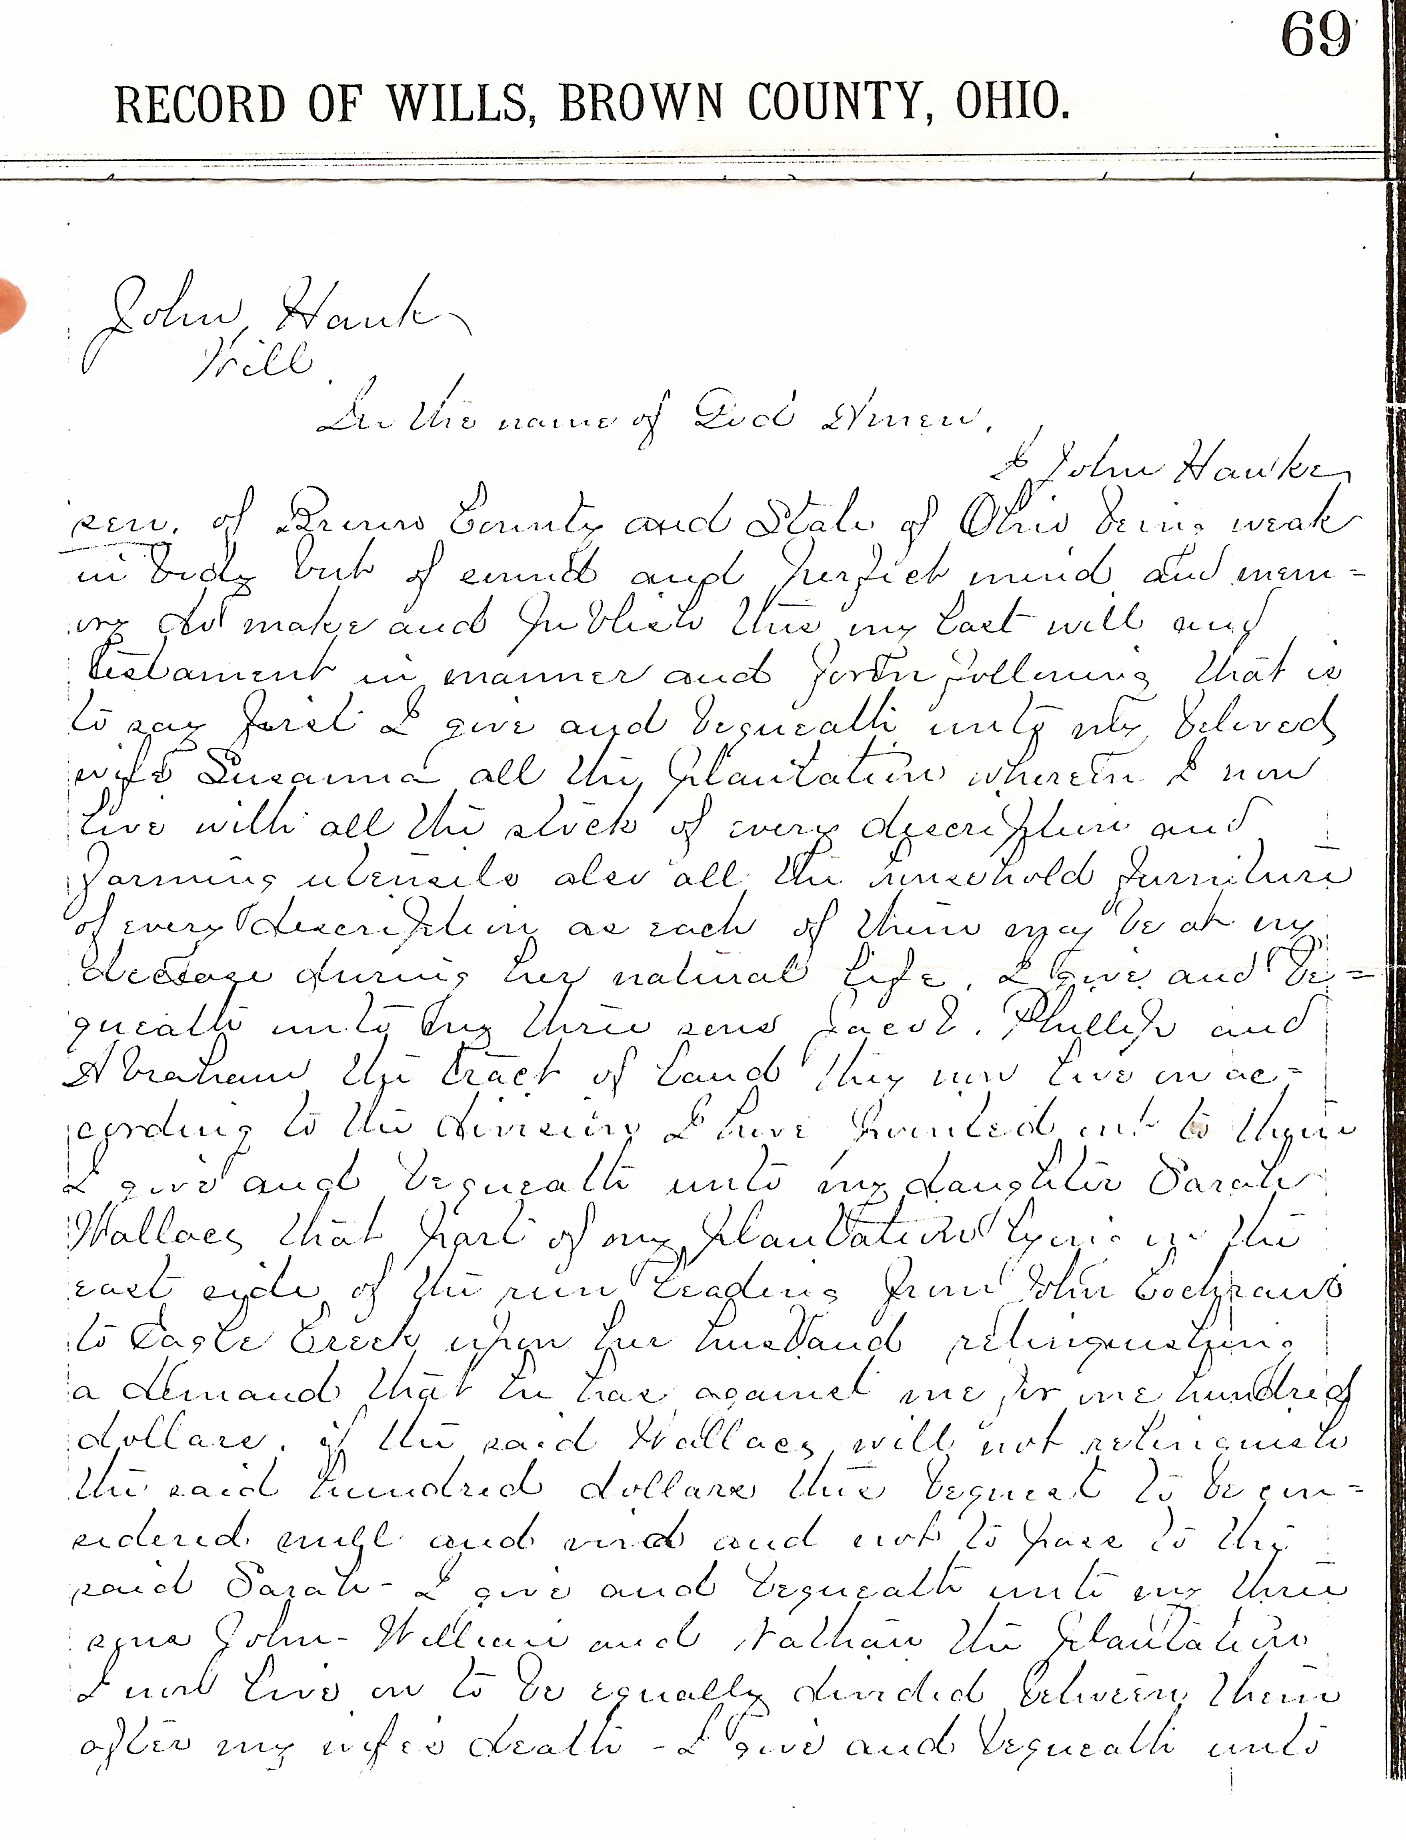 69
RECORD OF WILLS, BROWN COUNTY, OHIO.
John Hauk
Will
In the name of God Amen.
I John Hauke
sen. of Brown County and State of Ohio being weak
in body but of sound and perfect mind and mem=
ory do make and publish this my last will and
testament in manner and form following that is
to say first I give and bequeath unto my beloved
wife Susanna all the plantation wherein I now
live with all the stock of every description and
farming utensils also all the household furniture
of every description as each of them may be at my
decease during her natural life. I give and be=
queath unto my three sons Jacob. Phillip and
Abraham the tract of land they now live on ac=
cording to the division I have pointed out to them
I give and bequeath unto my daughter Sarah
Wallace that part of my plantation lying on the
east side of the run leading from John Cochrans
to Eagle Creek upon her husband relinquishing
a demand that he has against me for one hundred
dollars. if the said Wallace will not relinquish
the said hundred dollars this bequest to be con=
sidered null and void and not to pass to the
said Sarah - I give and bequeath unto my three
sons John - William and Nathan the plantation
I now live on to be equally divided between them
after my wife's death - I give and bequeath unto